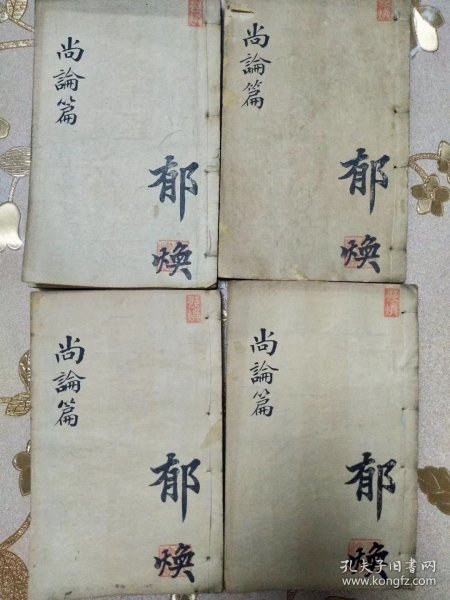 尚論篇
郁煥
尚論篇
郁煥
尚論篇
郁煥
尚論篇
郁煥
孔夫子旧书网
www.kongfz.com